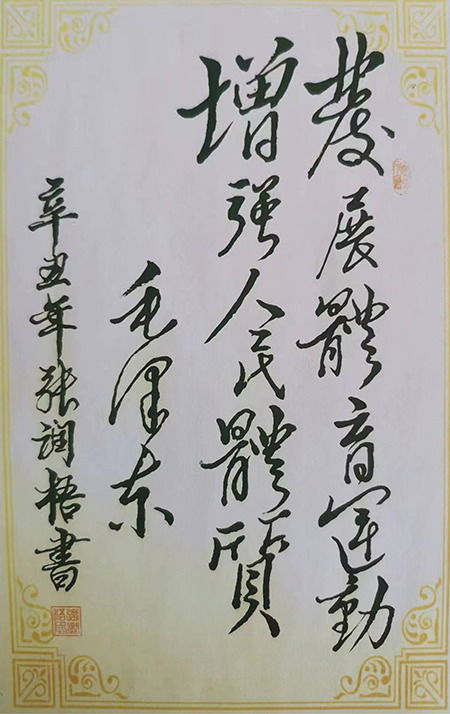 發展體育运動
增强人民體質
毛泽东
辛丑年张润梧書